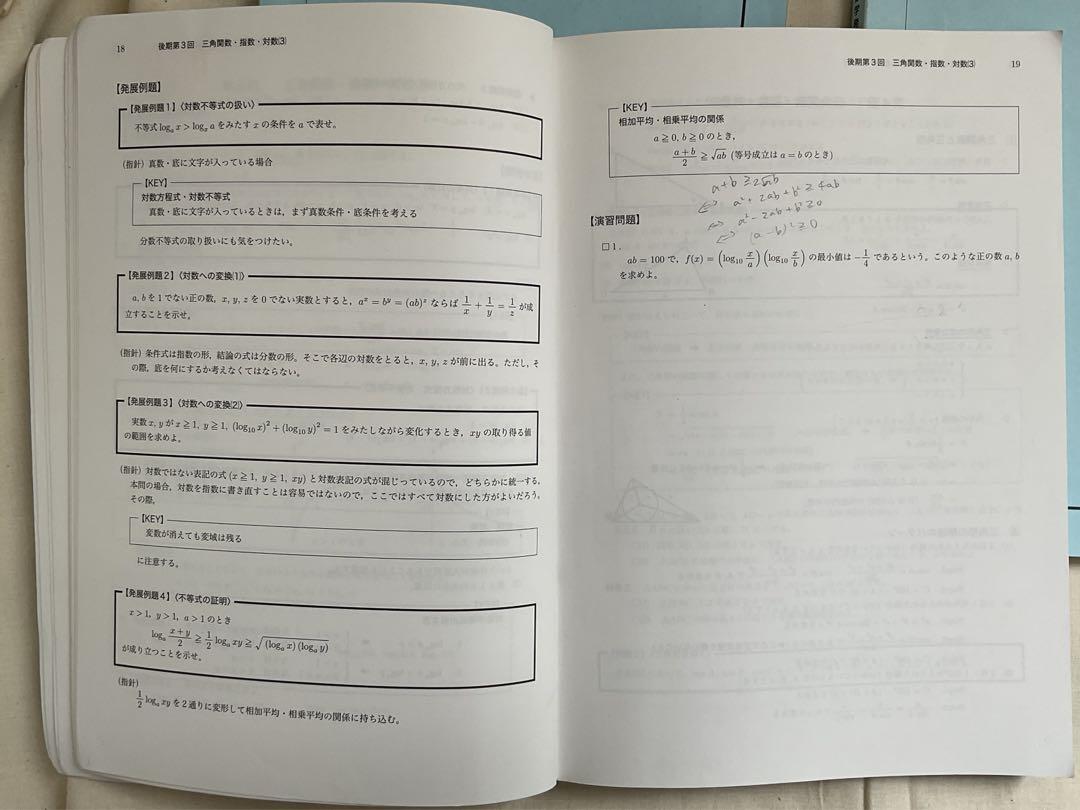 18 後期第3回 三角関数・指数・対数(3)
【発展例題】
【発展例題1】〈対数不等式の扱い〉
不等式 logₐ x > logₓ a をみたす x の条件を a で表せ。
(指針) 真数・底に文字が入っている場合
【KEY】
対数方程式・対数不等式
真数・底に文字が入っているときは，まず真数条件・底条件を考える
分数不等式の取り扱いにも気をつけたい。
【発展例題2】〈対数への変換(1)〉
a, b を 1 でない正の数，x, y, z を 0 でない実数とすると，aˣ = bʸ = (ab)ᶻ ならば 1/x + 1/y = 1/z が成
立することを示せ。
(指針) 条件式は指数の形，結論の式は分数の形。そこで各辺の対数をとると，x, y, z が前に出る。ただし，そ
の際，底を何にするか考えなくてはならない。
【発展例題3】〈対数への変換(2)〉
実数 x, y が x ≧ 1, y ≧ 1, (log₁₀ x)² + (log₁₀ y)² = 1 をみたしながら変化するとき，xy の取り得る値
の範囲を求めよ。
(指針) 対数ではない表記の式 (x ≧ 1, y ≧ 1, xy) と対数表記の式が混じっているので，どちらかに統一する。
本問の場合，対数を指数に書き直すことは容易ではないので，ここではすべて対数にした方がよいだろう。
その際，
【KEY】
変数が消えても変域は残る
に注意する。
【発展例題4】〈不等式の証明〉
x > 1, y > 1, a > 1 のとき
logₐ (x+y)/2 ≧ 1/2 logₐ xy ≧ √((logₐ x)(logₐ y))
が成り立つことを示せ。
(指針)
1/2 logₐ xy を 2 通りに変形して相加平均・相乗平均の関係に持ち込む。
後期第3回 三角関数・指数・対数(3) 19
【KEY】
相加平均・相乗平均の関係
a ≧ 0, b ≧ 0 のとき，
(a+b)/2 ≧ √ab (等号成立は a = b のとき)
a+b ≧ 2√ab
⇔ a²+2ab+b² ≧ 4ab
⇔ a²-2ab+b² ≧ 0
⇔ (a-b)² ≧ 0
【演習問題】
□1.
ab = 100 で，f(x) = (log₁₀ x/a)(log₁₀ x/b) の最小値は -1/4 であるという。このような正の数 a, b
を求めよ。